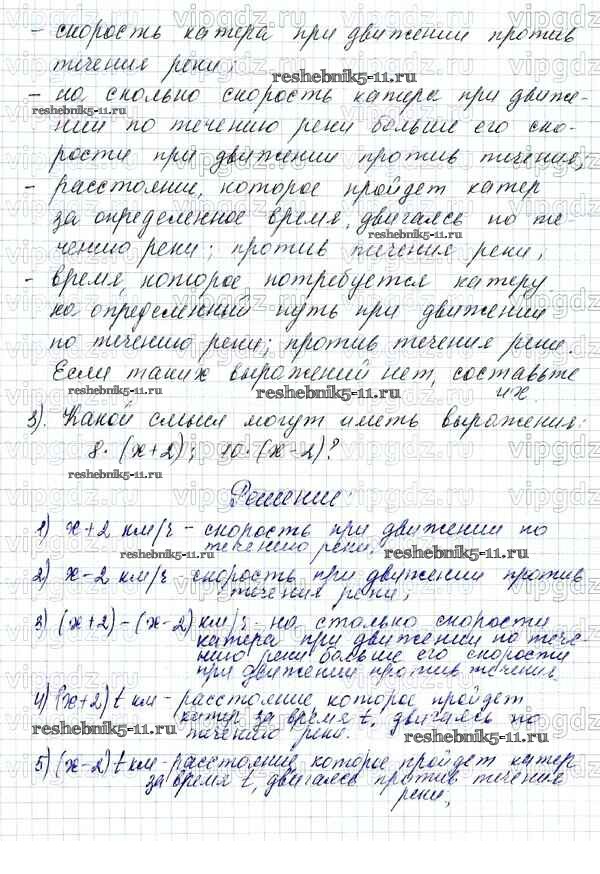 - скорость катера при движении против
течения реки;
- на сколько скорость катера при движе-
нии по течению реки больше его ско-
рости при движении против течения;
- расстояние, которое пройдет катер
за определенное время, двигаясь по те
чению реки; против течения реки;
- время, которое потребуется катеру
на определенный путь при движении
по течению реки; против течения реки.
Если таких выражений нет, составьте
их.
3). Какой смысл могут иметь выражения:
8·(x+2); 10·(x-2)?
Решение:
1) x+2 км/ч - скорость при движении по
течению реки;
2) x-2 км/ч - скорость при движении против
течения реки;
3) (x+2)-(x-2) км/ч - на столько скорости
катера при движении по тече
нию реки больше его скорости
при движении против течения,
4) (x+2)t км - расстояние которое пройдет
катер за время t, двигаясь по
течению реки.
5) (x-2)t км - расстояние которое пройдет катер
за время t, двигаясь против течения
реки,
reshebnik5-11.ru
reshebnik5-11.ru
reshebnik5-11.ru
reshebnik5-11.ru
reshebnik5-11.ru
reshebnik5-11.ru
reshebnik5-11.ru
reshebnik5-11.ru
reshebnik5-11.ru
reshebnik5-11.ru
vipgdz.ru